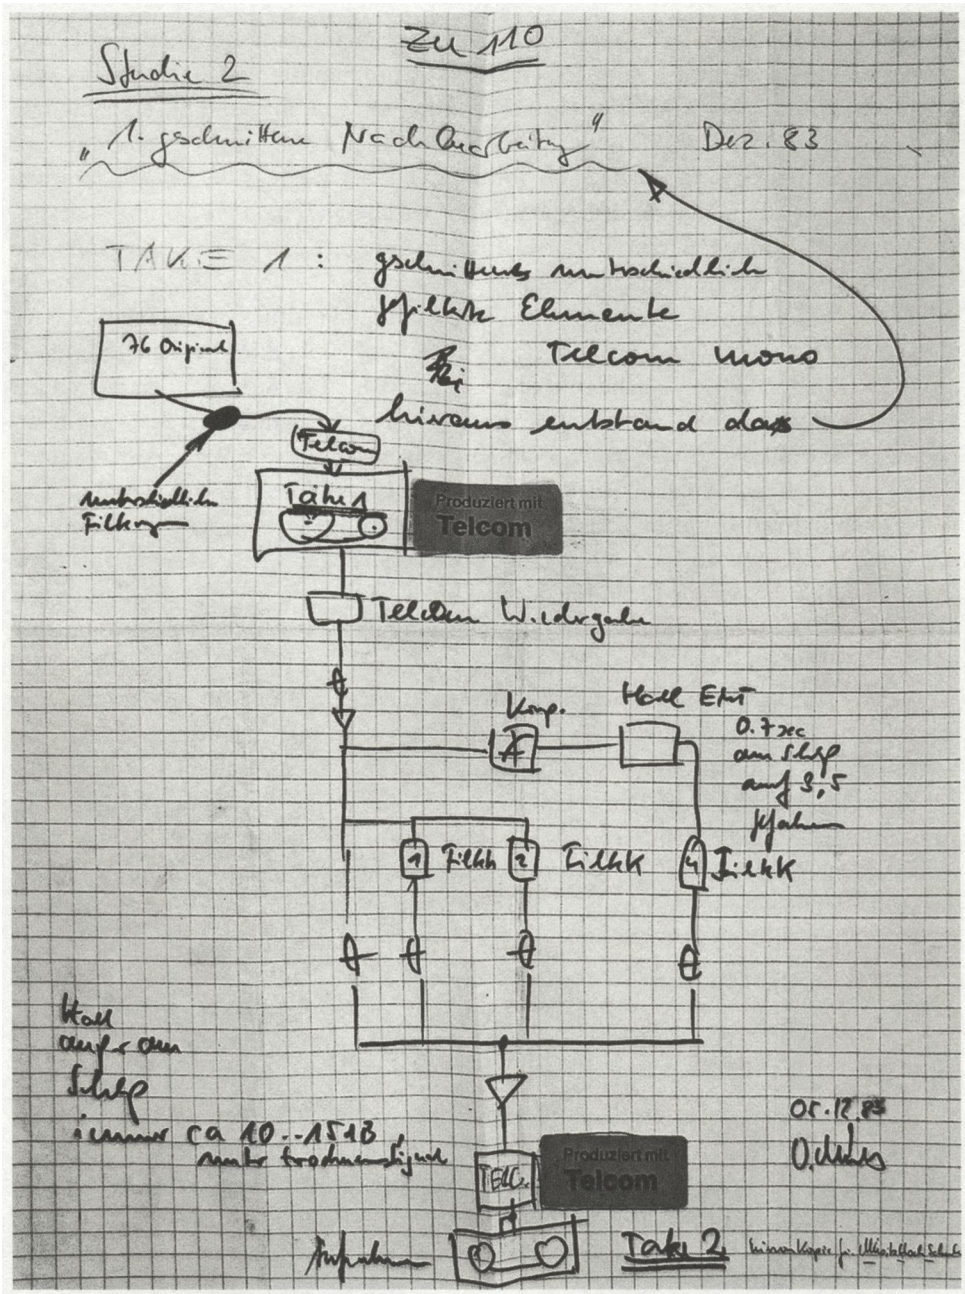 Zu 110
Studie 2
"1. gschnittene Nachbearbeitung" Dez. 83
TAKE 1: gschnittene unterschiedlich
gfilterte Elemente
Telcom mono
hieraus entstand das
76 Original
Telcom
unterschiedliche
Filterungen
Take 1
Produziert mit
Telcom
Telcom Wiedergabe
Komp.
Hall EMT
0.7 sec
am Schluß
auf 3,5
gfahren
1 Filter 2 Filter 4 Filter
Hall
außer am
Schluß
immer ca 10..15 dB
unter Trockensignal
05.12.83
TELC.
Produziert mit
Telcom
Aufnahme
Take 2
hiervon Kopie für